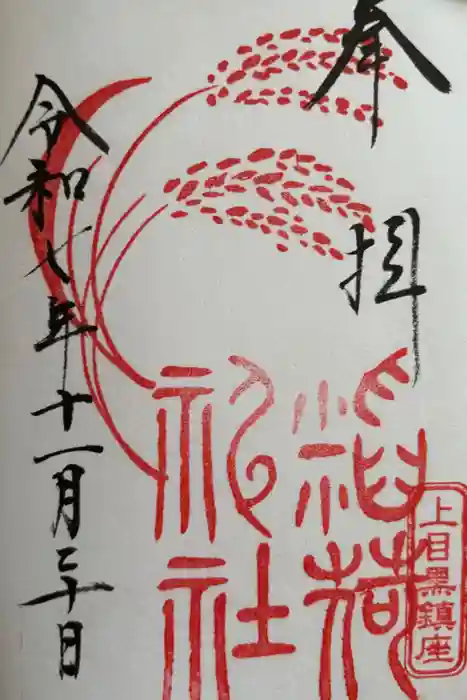 奉拝
稲荷
神社
上目黒鎮座
令和七年十一月二十日